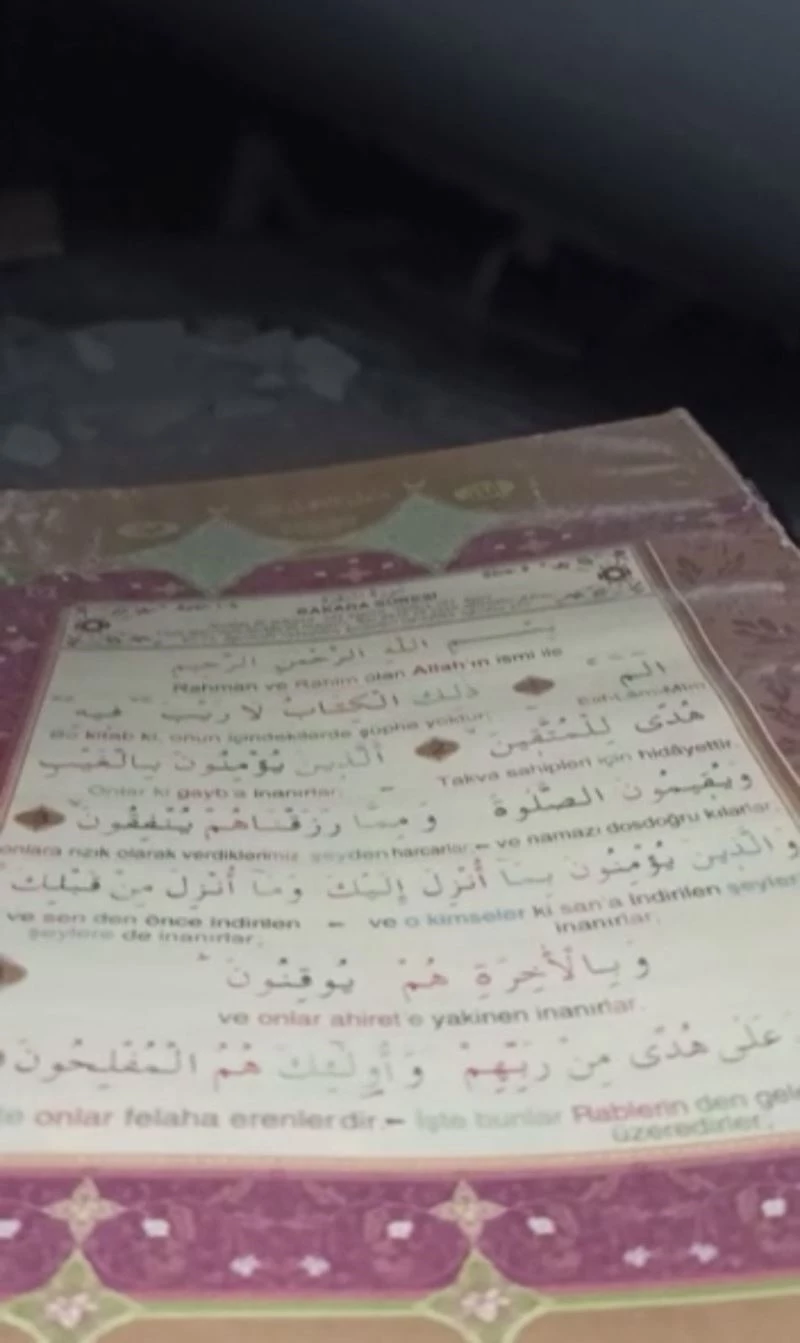 BAKARA SÛRESİ
بِسْمِ اللهِ الرَّحْمٰنِ الرَّحِيمِ
Rahman ve Rahim olan Allah'ın ismi ile
الم ذٰلِكَ الْكِتَابُ لَا رَيْبَ فِيهِ
Elif-Lâm-Mîm
Bu kitab ki, onun içindekilerde şüphe yoktur;
هُدًى لِلْمُتَّقِينَ الَّذِينَ يُؤْمِنُونَ بِالْغَيْبِ
Takva sahipleri için hidâyettir. Onlar ki gayb'a inanırlar;
وَيُقِيمُونَ الصَّلٰوةَ وَمِمَّا رَزَقْنَاهُمْ يُنْفِقُونَ
ve namazı dosdoğru kılarlar – onlara rızık olarak verdiklerimiz şeyden harcarlar
وَالَّذِينَ يُؤْمِنُونَ بِمَا أُنْزِلَ إِلَيْكَ وَمَا أُنْزِلَ مِنْ قَبْلِكَ
ve o kimseler ki san'a indirilen şeylere inanırlar; – ve sen den önce indirilen şeylere de inanırlar;
وَبِالْاٰخِرَةِ هُمْ يُوقِنُونَ
ve onlar ahiret e yakinen inanırlar.
عَلٰى هُدًى مِنْ رَبِّهِمْ وَأُولٰئِكَ هُمُ الْمُفْلِحُونَ
İşte bunlar Rablerin den üzeredirler; – onlar felaha erenlerdir.